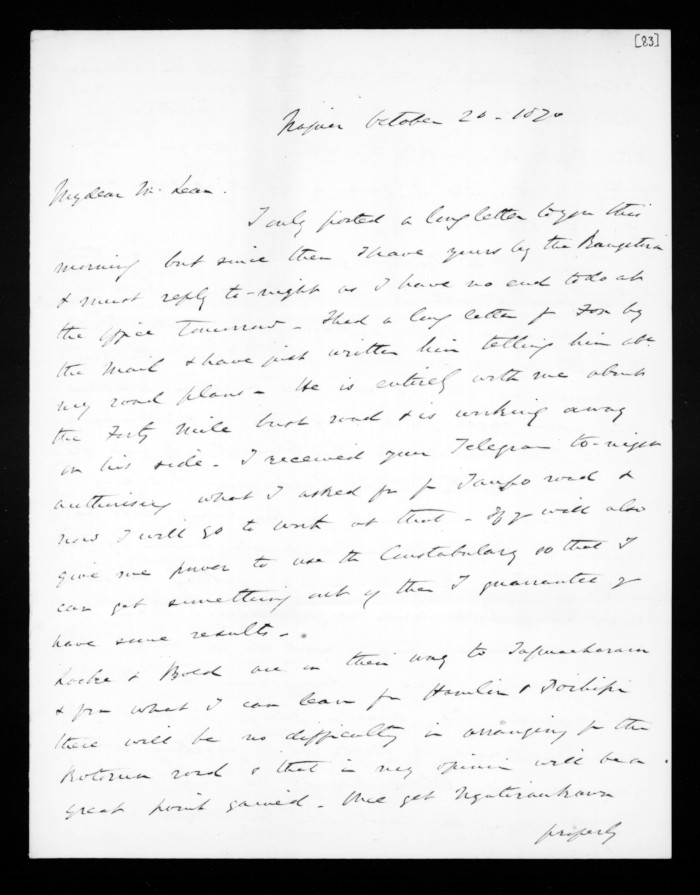 [83]
Napier October 20 - 1870
My dear McLean.
I only posted a long letter to you this
morning but since then I have yours by the Rangatira
& must reply to-night as I have no end to do at
the office tomorrow - I had a long letter fr Fox by
the Mail & have just written him telling him abt
my road plans - He is entirely with me about
the Forty Mile bush road & is working away
on his side - I received your Telegram to-night
authorising what I asked for fr Taupo road &
now I will go to work at that - If y will also
give me power to use the Constabulary so that I
can get something out of them I guarantee y
have some results -
Locke & Bold are on their way to Tapuaeharuru
& from what I can learn fr Hamlin &
there will be no difficulty in arranging for the
Rotorua road & that in my opinion will be a
great point gained - Once get Ngatiraukawa
properly